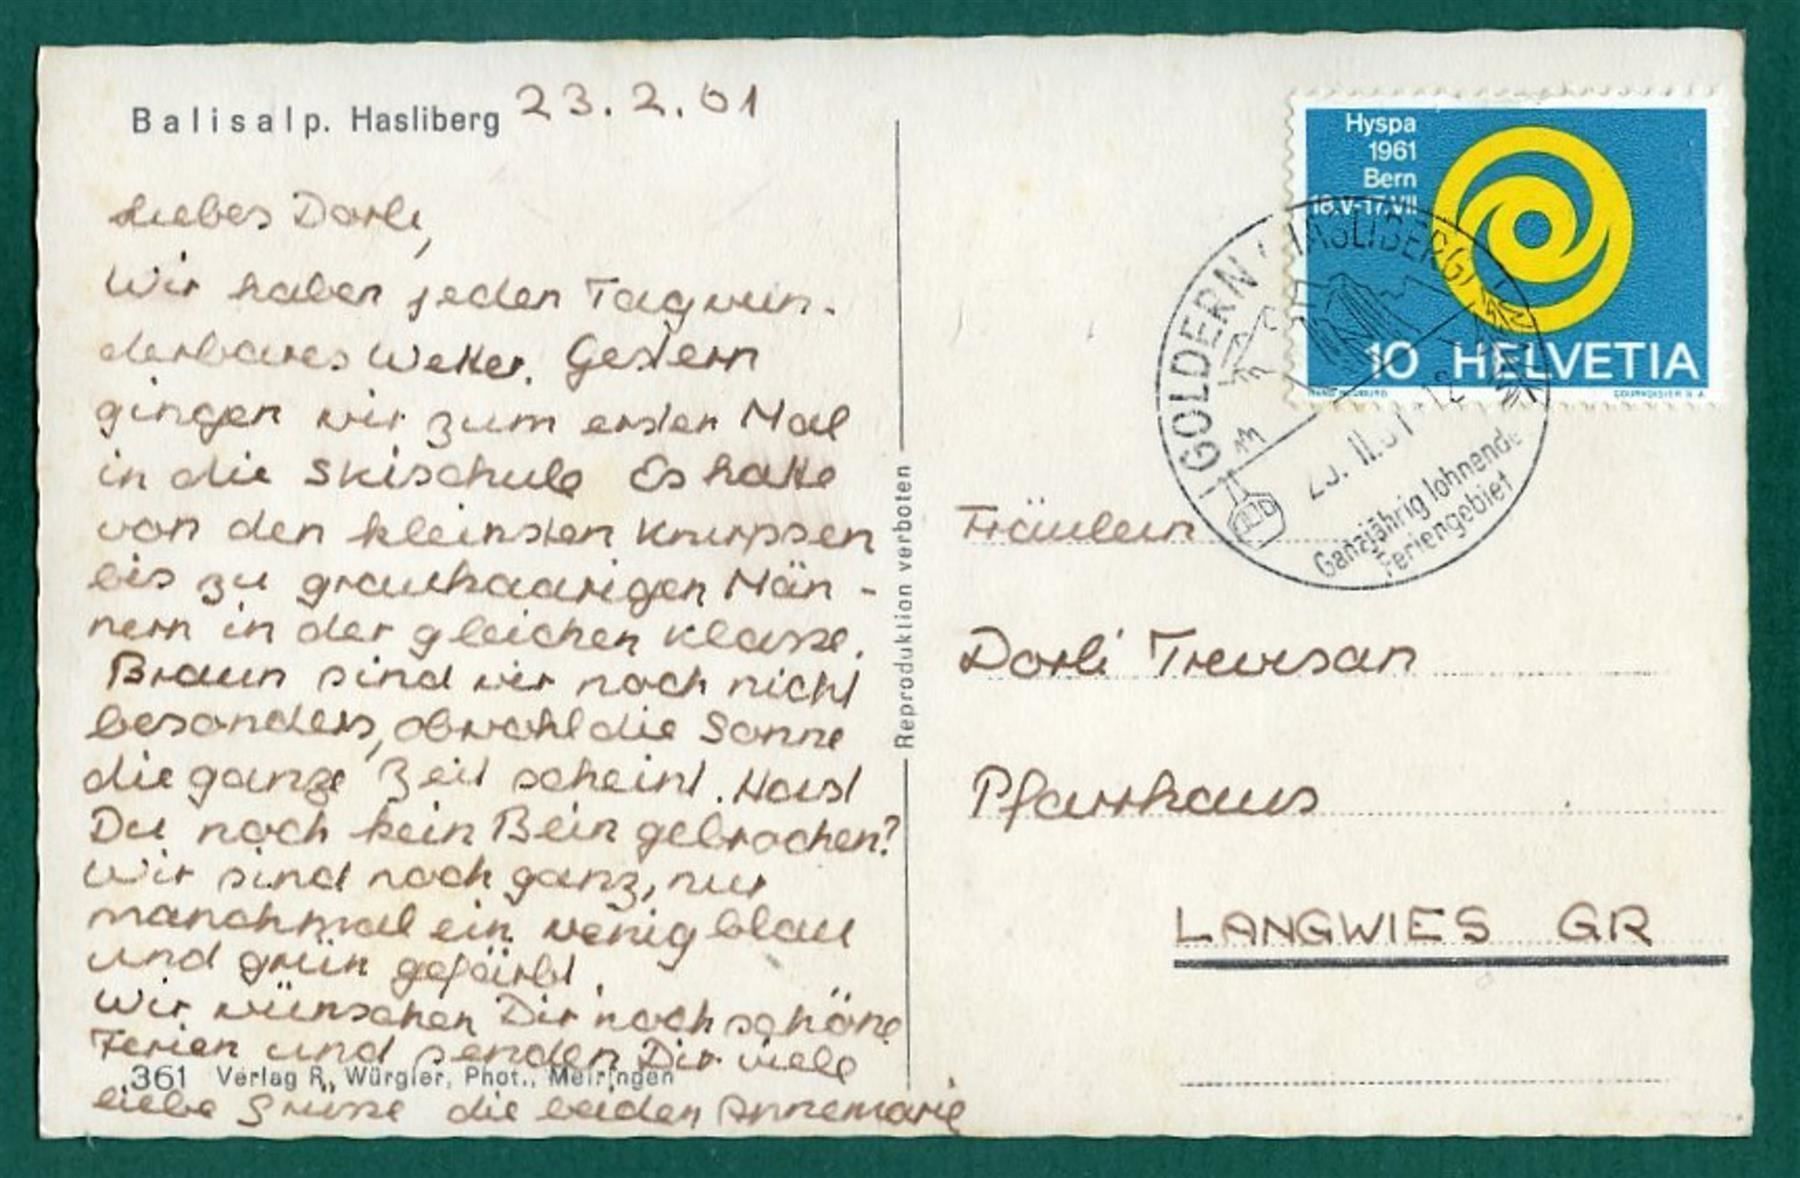 Balisalp. Hasliberg 23.2.61
Liebes Dorli,
Wir haben jeden Tag wun-
derbares Wetter. Gestern
gingen wir zum ersten Mal
in die Skischule Es hatte
von den kleinsten Knirpsen
bis zu grauhaarigen Män-
nern in der gleichen Klasse.
Braun sind wir noch nicht
besonders, obwohl die Sonne
die ganze Zeit scheint. Hast
Du noch kein Bein gebrochen?
Wir sind noch ganz, nur
manchmal ein wenig blau
und grün gefärbt.
Wir wünschen Dir noch schöne
Ferien und senden Dir viele
361 Verlag R. Würgler, Phot., Meiringen
liebe Grüsse die beiden Annemarie
Reproduktion verboten
Hyspa
1961
Bern
18.V-17.VII
10 HELVETIA
HANS HARTMANN
COURVOISIER S.A.
GOLDERN (HASLIBERG)
23.II.61-12
Ganzjährig lohnendes
Feriengebiet
Fräulein
Dorli Trevisan
Pfarrhaus
LANGWIES GR